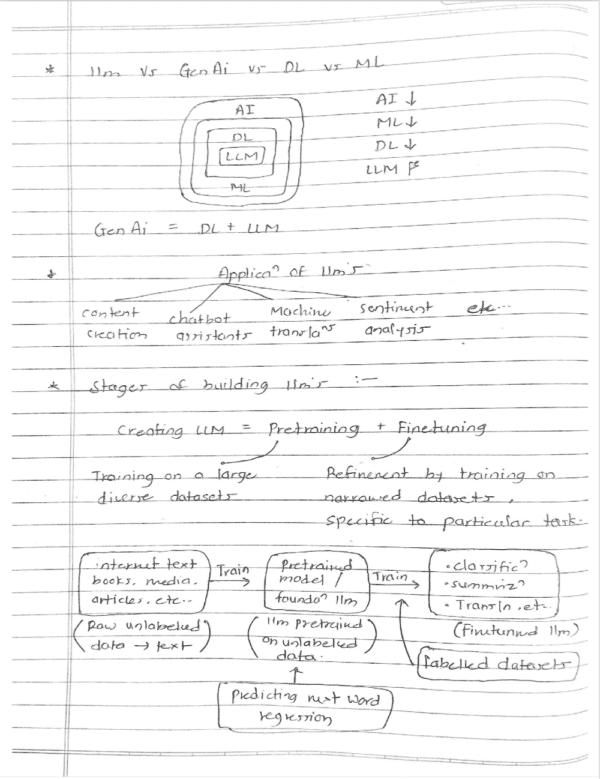 * llm vs GenAi vs DL vs ML
AI
DL
LLM
ML
AI ↓
ML ↓
DL ↓
LLM
GenAi = DL + LLM
* Applicaⁿ of llm's
content creation
chatbot assistants
Machine translaⁿs
sentiment analysis
etc...
* Stages of building llm's :—
Creating LLM = Pretraining + Finetuning
Training on a large
diverse datasets
Refinement by training on
narrowed datasets,
specific to particular task.
internet text
books, media,
articles, etc...
(Raw unlabeled
data → text)
Train →
Pretrained
model /
foundaⁿ llm
(llm pretrained
on unlabelled
data.)
Train →
• classificⁿ
• summrizⁿ
• Transln .etc..
(finetunned llm)
labelled datasets
predicting next word
regression